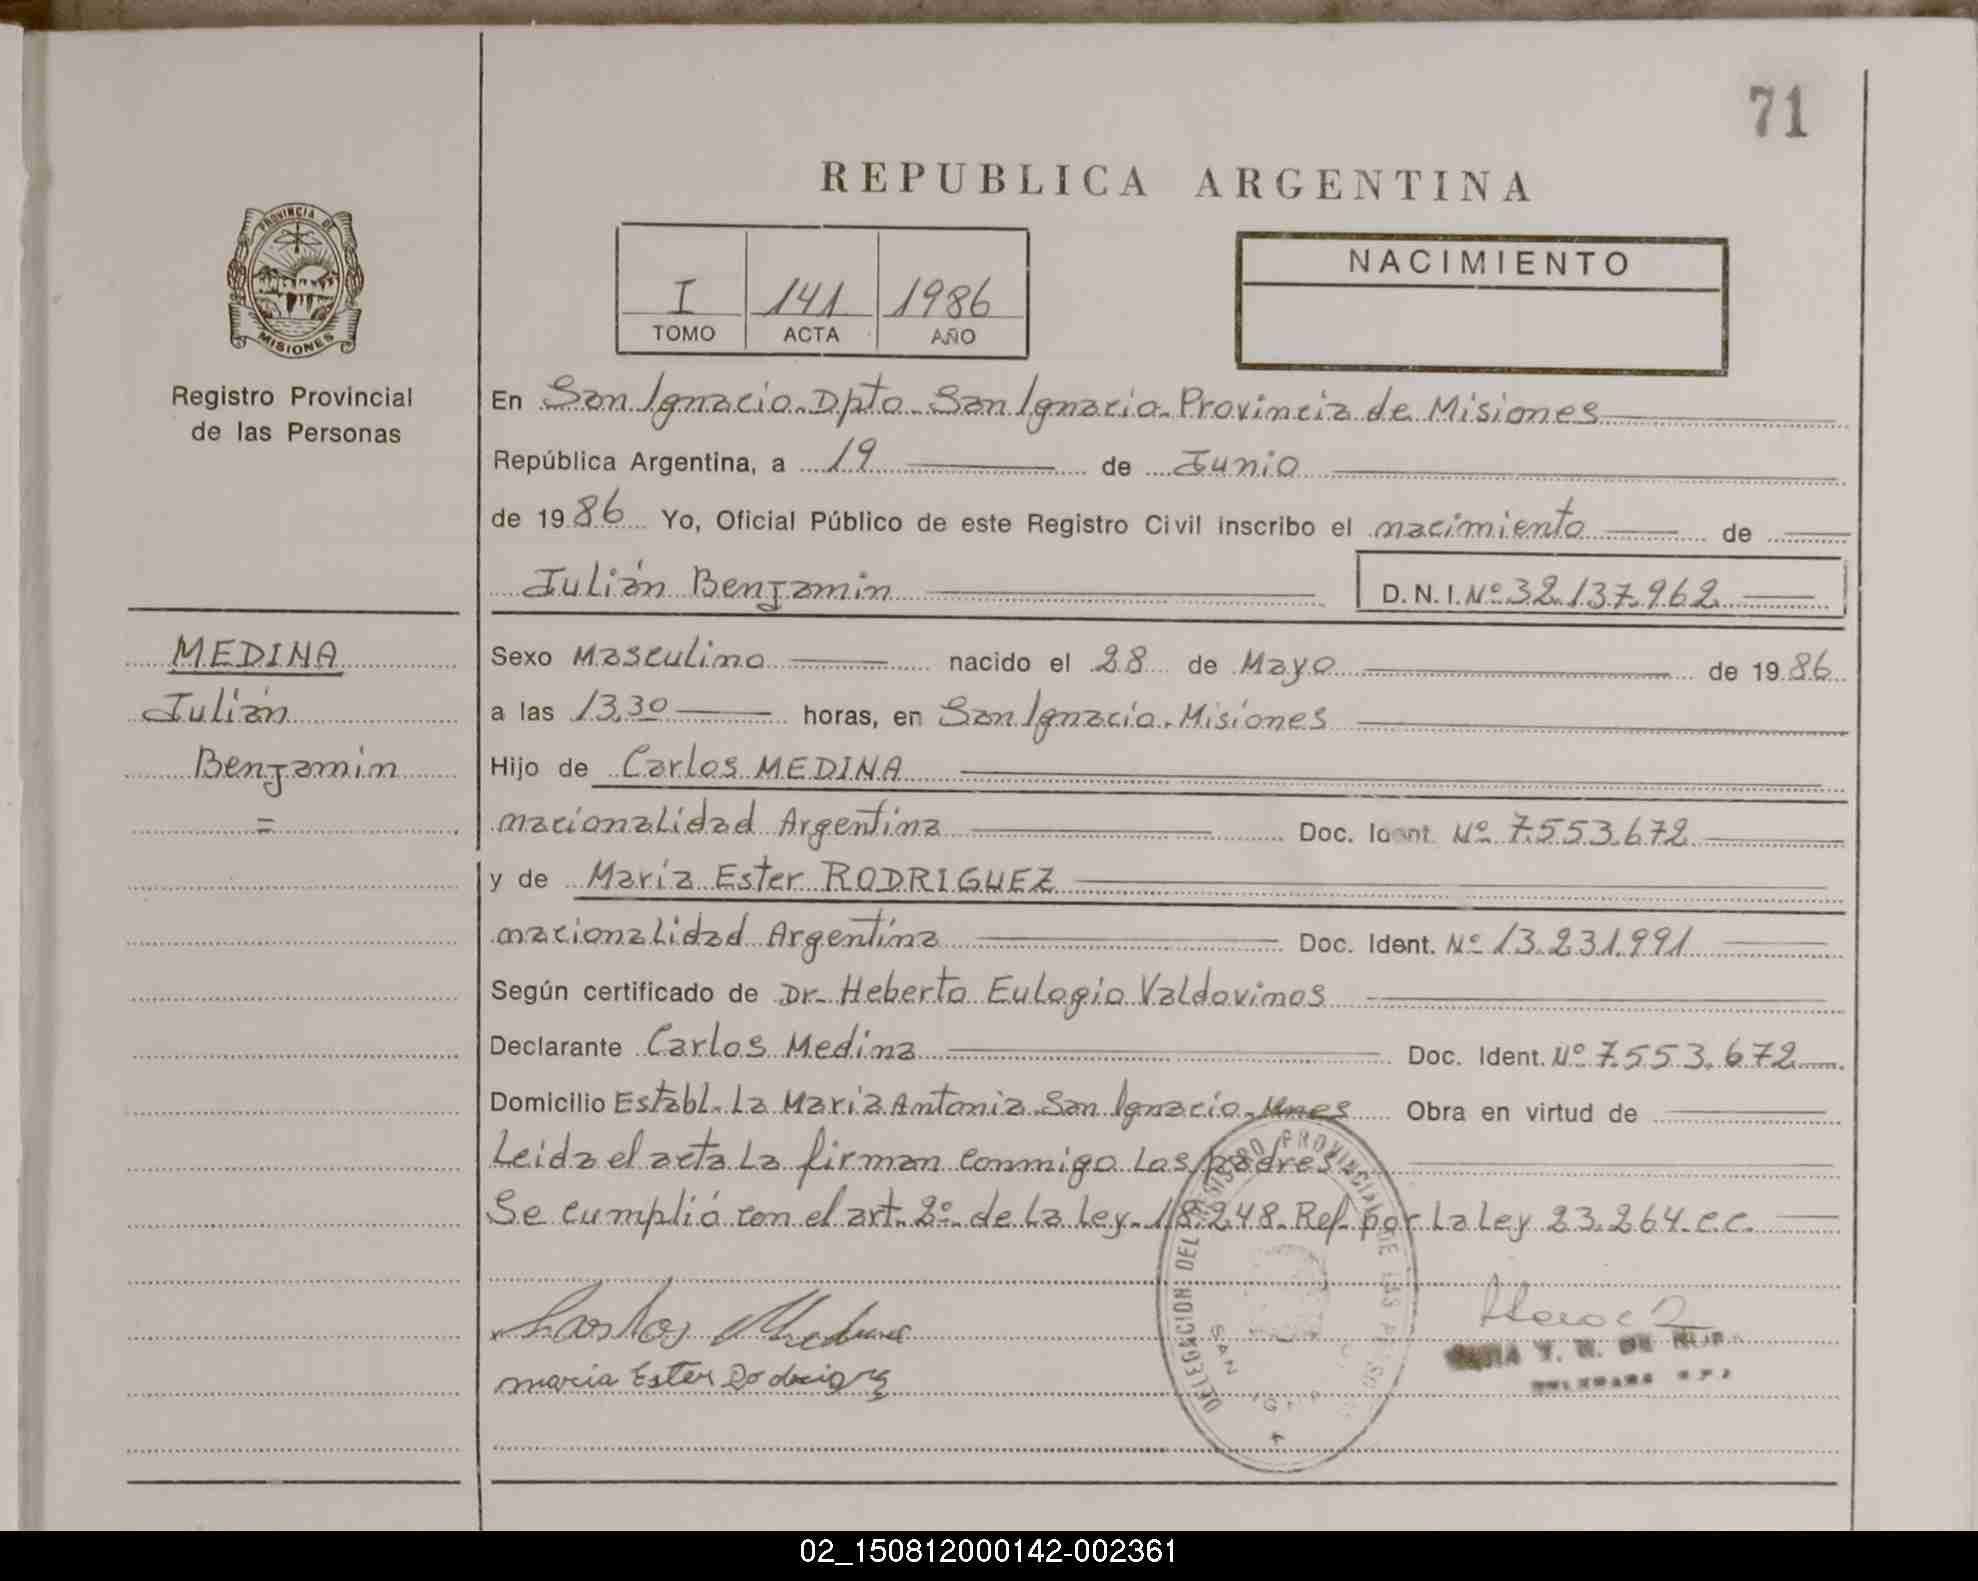 71
REPUBLICA ARGENTINA
PROVINCIA DE
MISIONES
Registro Provincial
de las Personas
I 141 1986
TOMO ACTA AÑO
NACIMIENTO
En San Ignacio-Dpto-San Ignacio-Provincia de Misiones
República Argentina, a 19 de Junio
de 1986 Yo, Oficial Público de este Registro Civil inscribo el nacimiento de
Julián Benjamin D.N.I. Nº 32.137.962
MEDINA
Julián
Benjamin
=
Sexo Masculino nacido el 28 de Mayo de 1986
a las 13,30 horas, en San Ignacio-Misiones
Hijo de Carlos MEDINA
nacionalidad Argentina Doc. Ident. Nº 7.553.672
y de María Ester RODRIGUEZ
nacionalidad Argentina Doc. Ident. Nº 13.231.991
Según certificado de Dr- Heberto Eulogio Valdovinos
Declarante Carlos Medina Doc. Ident. Nº 7.553.672
Domicilio Establ- La María Antonia-San Ignacio-Mnes Obra en virtud de
Leida el acta la firman conmigo los padres-
Se cumplió con el art-2º-de la Ley-18.248-Ref-por La Ley 23.264-c.c.
Carlos Medina
maria Ester Rodriguez
DELEGACION DEL REGISTRO PROVINCIAL DE LAS
SAN
02_150812000142-002361